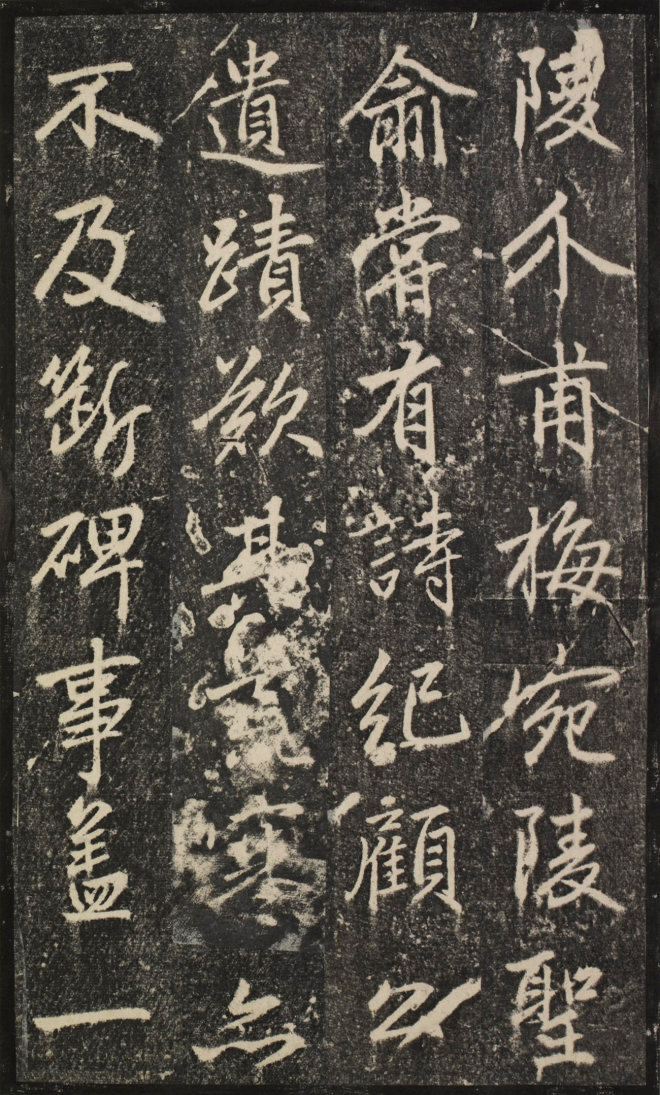 陵介甫梅宛陵聖
俞嘗有詩紀顧公
遺蹟歎其荒寒亦
不及斷碑事蓋一